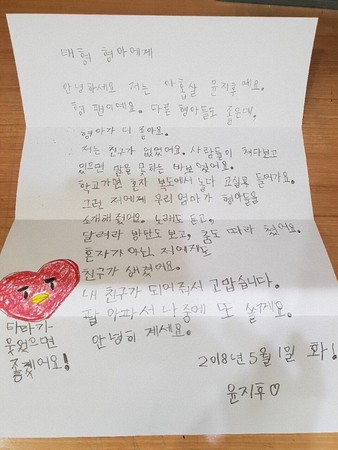 태형 형아에게
안녕하세요 저는 아홉살 윤지후예요.
형 팬이에요. 다른 형아들도 좋은데,
형아가 더 좋아요.
저는 친구가 없었어요. 사람들이 쳐다보고
있으면 말을 못하는 바보였어요.
학교가면 혼자 복도에서 놀다 교실로 들어가요.
그런 저에게 우리 엄마가 형아들을
소개해 줬어요. 노래도 듣고,
달려라 방탄도 보고, 춤도 따라 췄어요.
혼자가 아닌 저에게도
친구가 생겼어요.
내 친구가 되어줘서 고맙습니다.
팔 아파서 나중에 또 쓸게요.
안녕히 계세요.
타타가
웃었으면
좋겠어요!
2018년 5월 1일 화!
윤지후♡